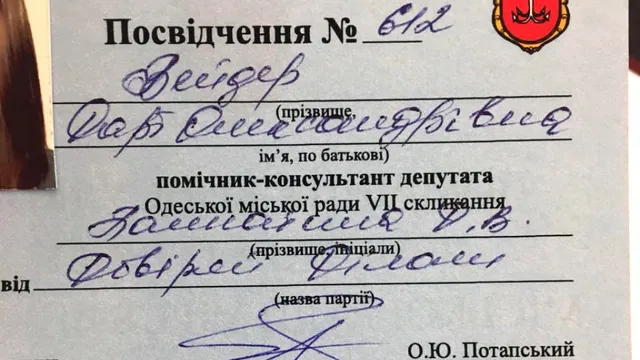 Посвідчення № 612
Вейдер
(прізвище,
Дарт Олександрівна
ім’я, по батькові)
помічник-консультант депутата
Одеської міської ради VII скликання
Д. В.
(прізвище, ініціали)
від Довіряй Ділам
(назва партії)
О.Ю. Потапський